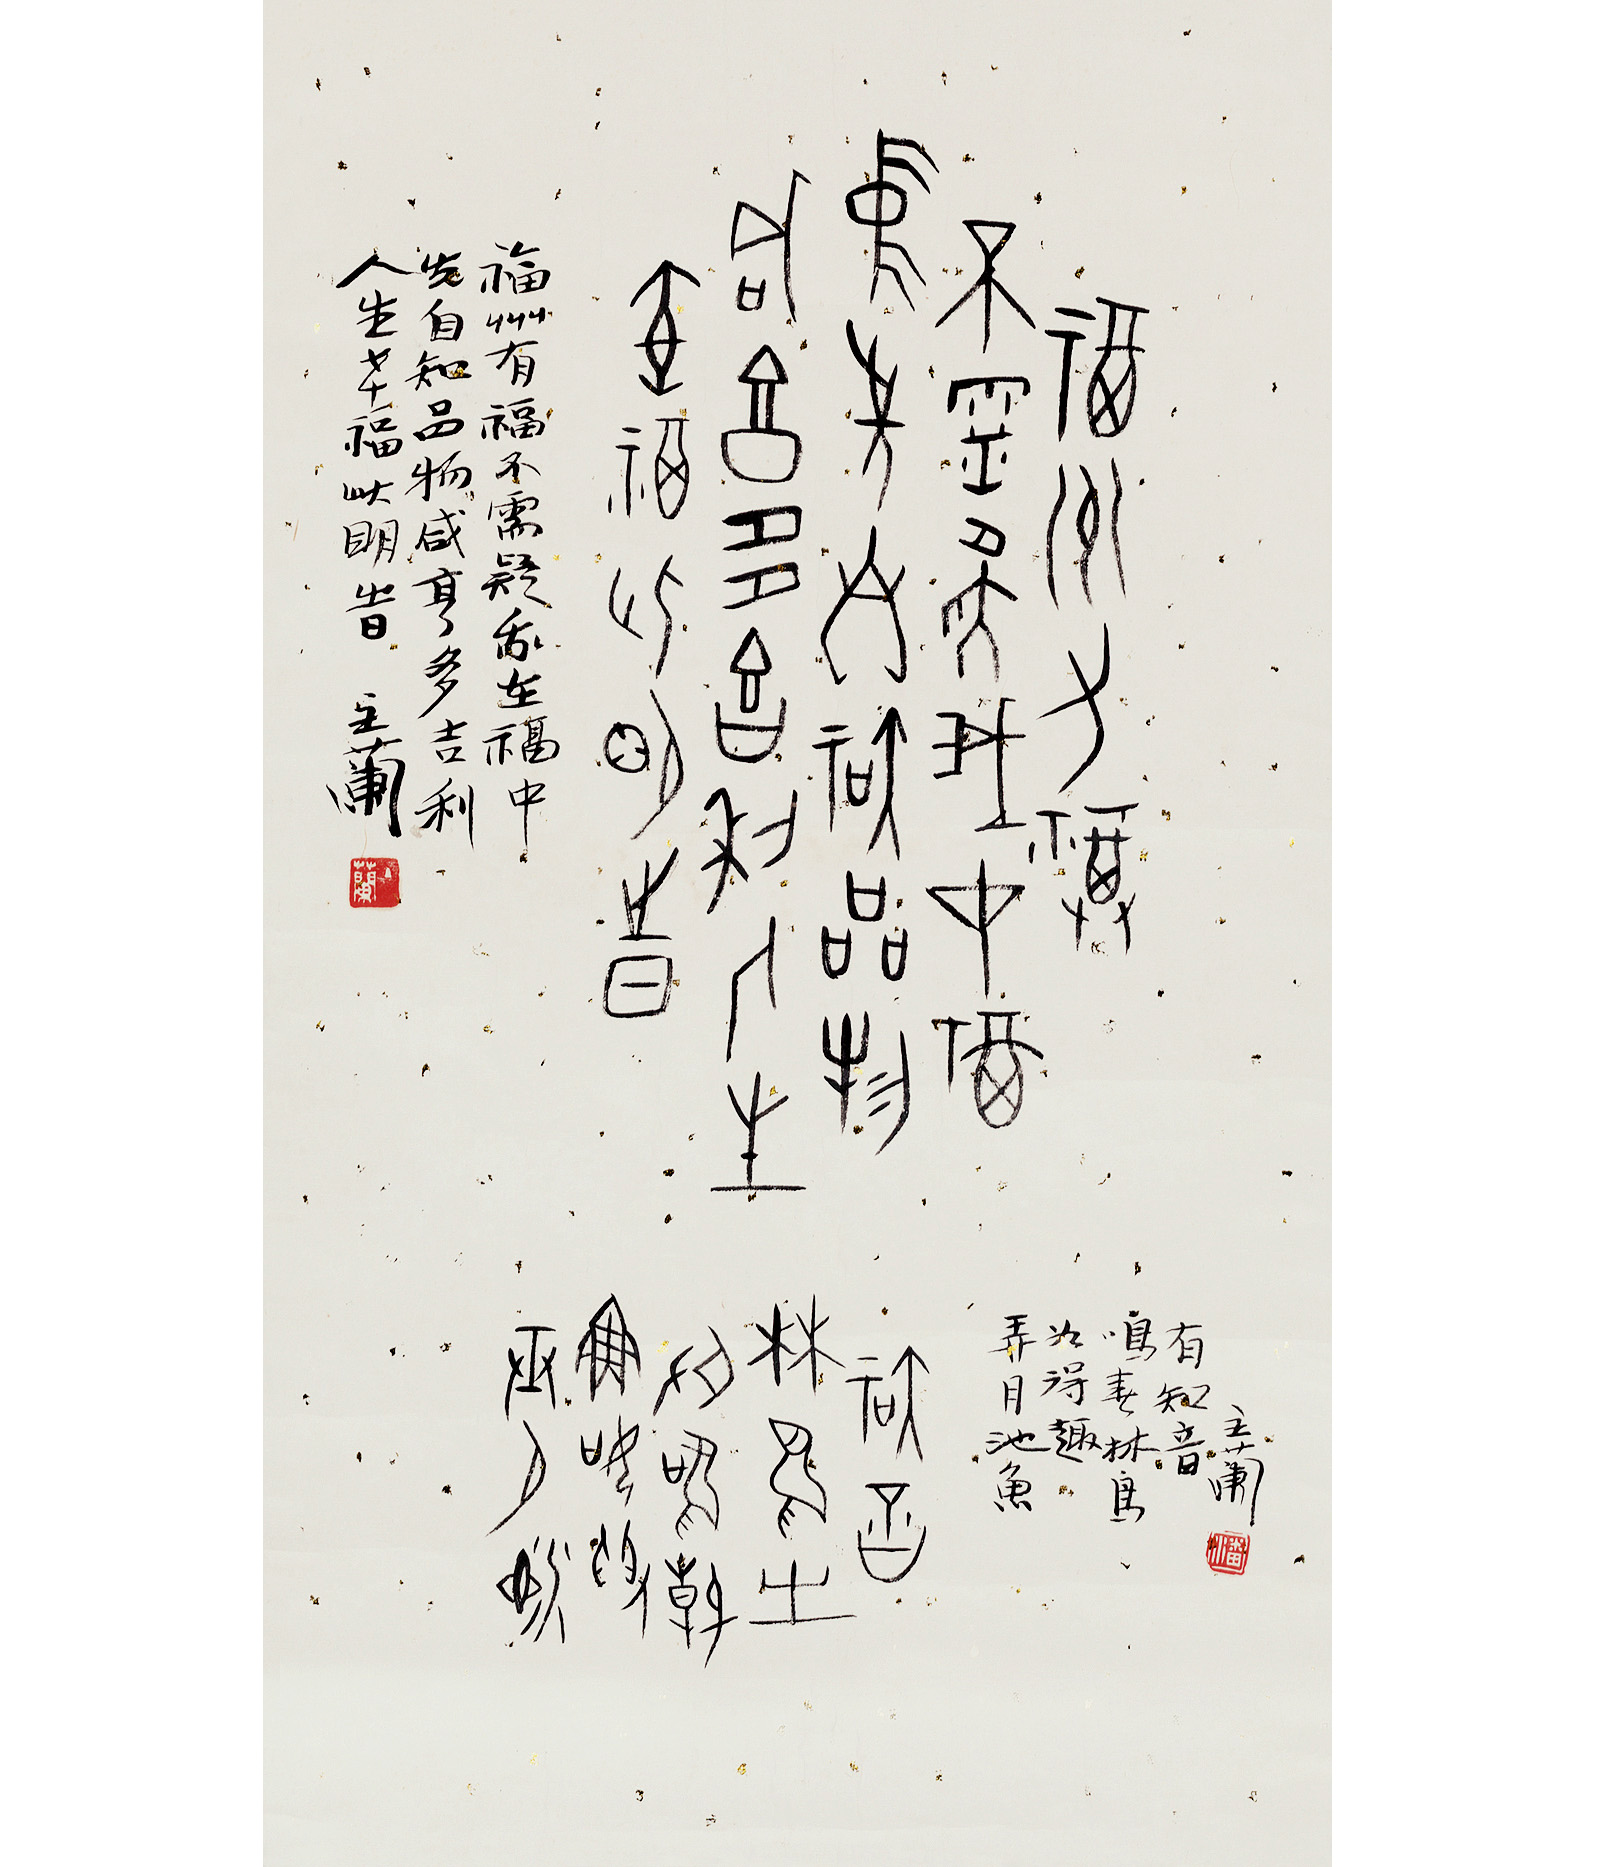 福州有福
不需疑在中福
先自知品物
咸亨多吉利人生
幸福此明旹
福州有福不需疑我在福中
先自知品物咸亨多吉利
人生幸福此明旹 主蘭
蘭
弄月池
魚如得
趣鳴春
林鳥有
知音
弄月池魚
如得趣
鳴春林鳥
有知音
主蘭
潘